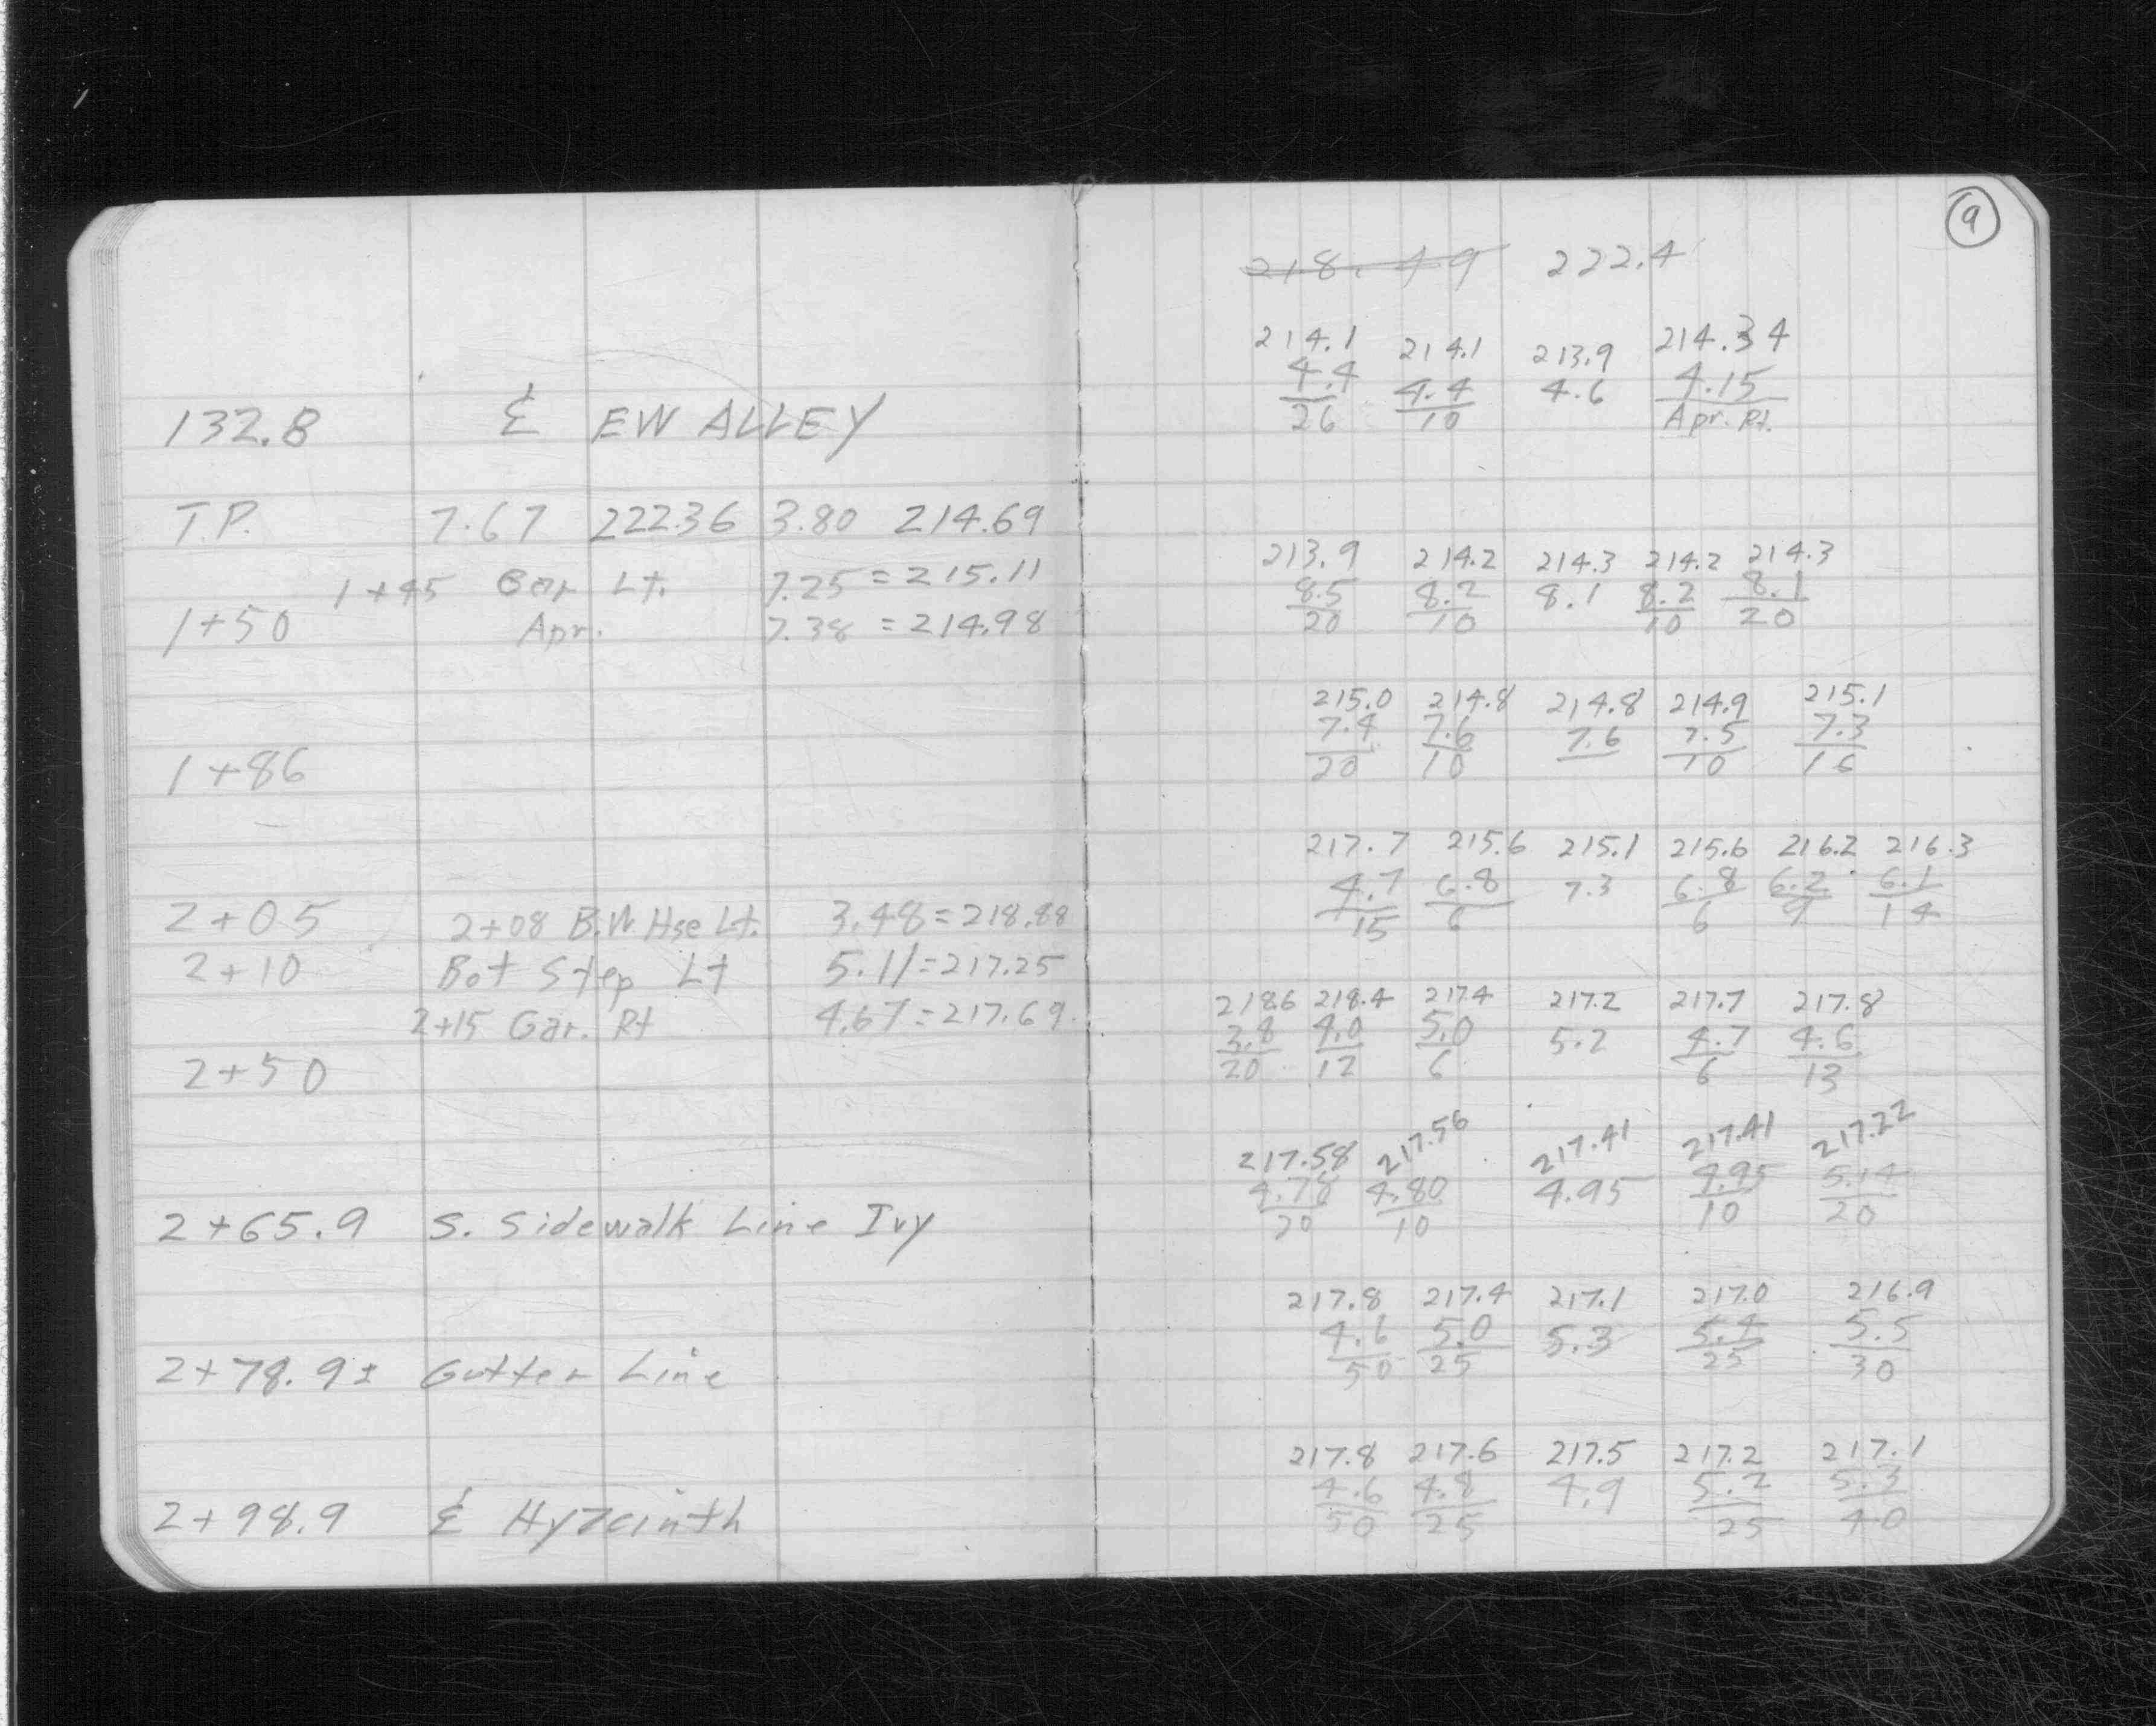 132.8 ⅊ EW ALLEY
T.P. 7.67 222.36 3.80 214.69
1+45 Gar Lt. 7.25 = 215.11
1+50 Apr. 7.38 = 214.98
1+86
2+05 2+08 B.W Hse Lt. 3.48 = 218.88
2+10 Bot Step Lt 5.11 = 217.25
2+15 Gar. Rt 4.67 = 217.69
2+50
2+65.9 S. Sidewalk Line Ivy
2+78.9± Gutter Line
2+98.9 ⅊ Hyacinth
9
218.49 222.4
214.1 214.1 213.9 214.34
4.4 4.4 4.6 4.15
26 10 Apr. Rt.
213.9 214.2 214.3 214.2 214.3
8.5 8.2 8.1 8.2 8.1
20 10 10 20
215.0 214.8 214.8 214.9 215.1
7.4 7.6 7.6 7.5 7.3
20 10 10 16
217.7 215.6 215.1 215.6 216.2 216.3
4.7 6.8 7.3 6.8 6.2 6.1
15 6 6 9 14
218.6 218.4 217.4 217.2 217.7 217.8
3.8 4.0 5.0 5.2 4.7 4.6
20 12 6 6 13
217.58 217.56 217.41 217.41 217.22
4.78 4.80 4.95 4.95 5.14
20 10 10 20
217.8 217.4 217.1 217.0 216.9
4.6 5.0 5.3 5.4 5.5
50 25 25 30
217.8 217.6 217.5 217.2 217.1
4.6 4.8 4.9 5.2 5.3
50 25 25 40